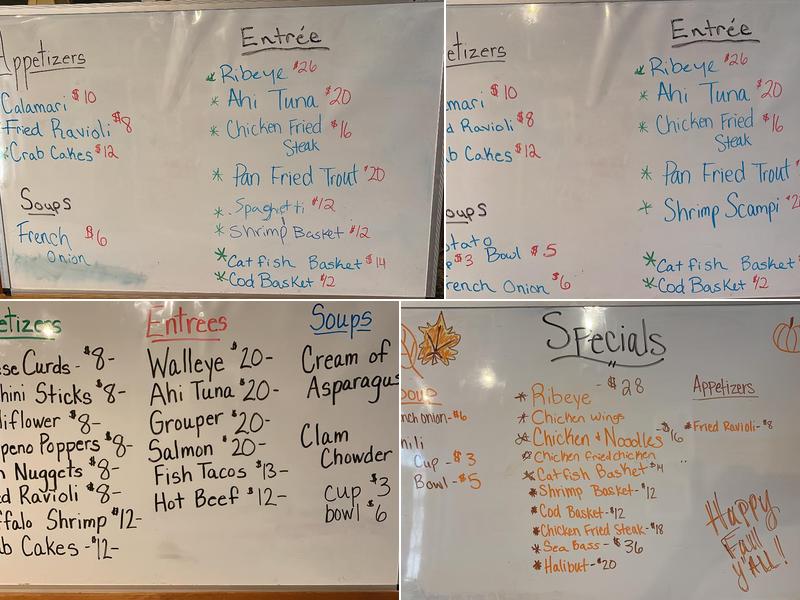 Appetizers
Calamari $10
Fried Ravioli $8
*Crab Cakes $12
Soups
French $6
Onion
Entrée
Ribeye $26
* Ahi Tuna $20
* Chicken Fried $16
Steak
* Pan Fried Trout $20
* Spaghetti $12
* Shrimp Basket $12
* Catfish Basket $14
* Cod Basket $12
etizers
mari $10
d Ravioli $8
ab Cakes $12
oups
otato
$3 Bowl $5
rench Onion $6
Entrée
Ribeye $26
* Ahi Tuna $20
* Chicken Fried $16
Steak
* Pan Fried Trout
* Shrimp Scampi
* Catfish Basket
* Cod Basket $12
etizers
ese Curds - $8-
hini Sticks $8-
liflower $8-
peno Poppers $8-
n Nuggets $8-
ed Ravioli $8-
ffalo Shrimp $12-
ab Cakes - $12-
Entrees
Walleye $20-
Ahi Tuna $20-
Grouper $20-
Salmon $20-
Fish Tacos $13-
Hot Beef $12-
Soups
Cream of
Asparagus
Clam
Chowder
cup $3
bowl $6
Specials
oup
nch onion-$6
hili
Cup - $3
Bowl - $5
* Ribeye - $28
* Chicken wings
* Chicken & Noodles - $16
* Chicken fried chicken
* Catfish Basket - $14
* Shrimp Basket - $12
* Cod Basket - $12
* Chicken Fried Steak - $18
* Sea Bass - $36
* Halibut - $20
Appetizers
* Fried Ravioli - $8
Happy
Fall
y'All!